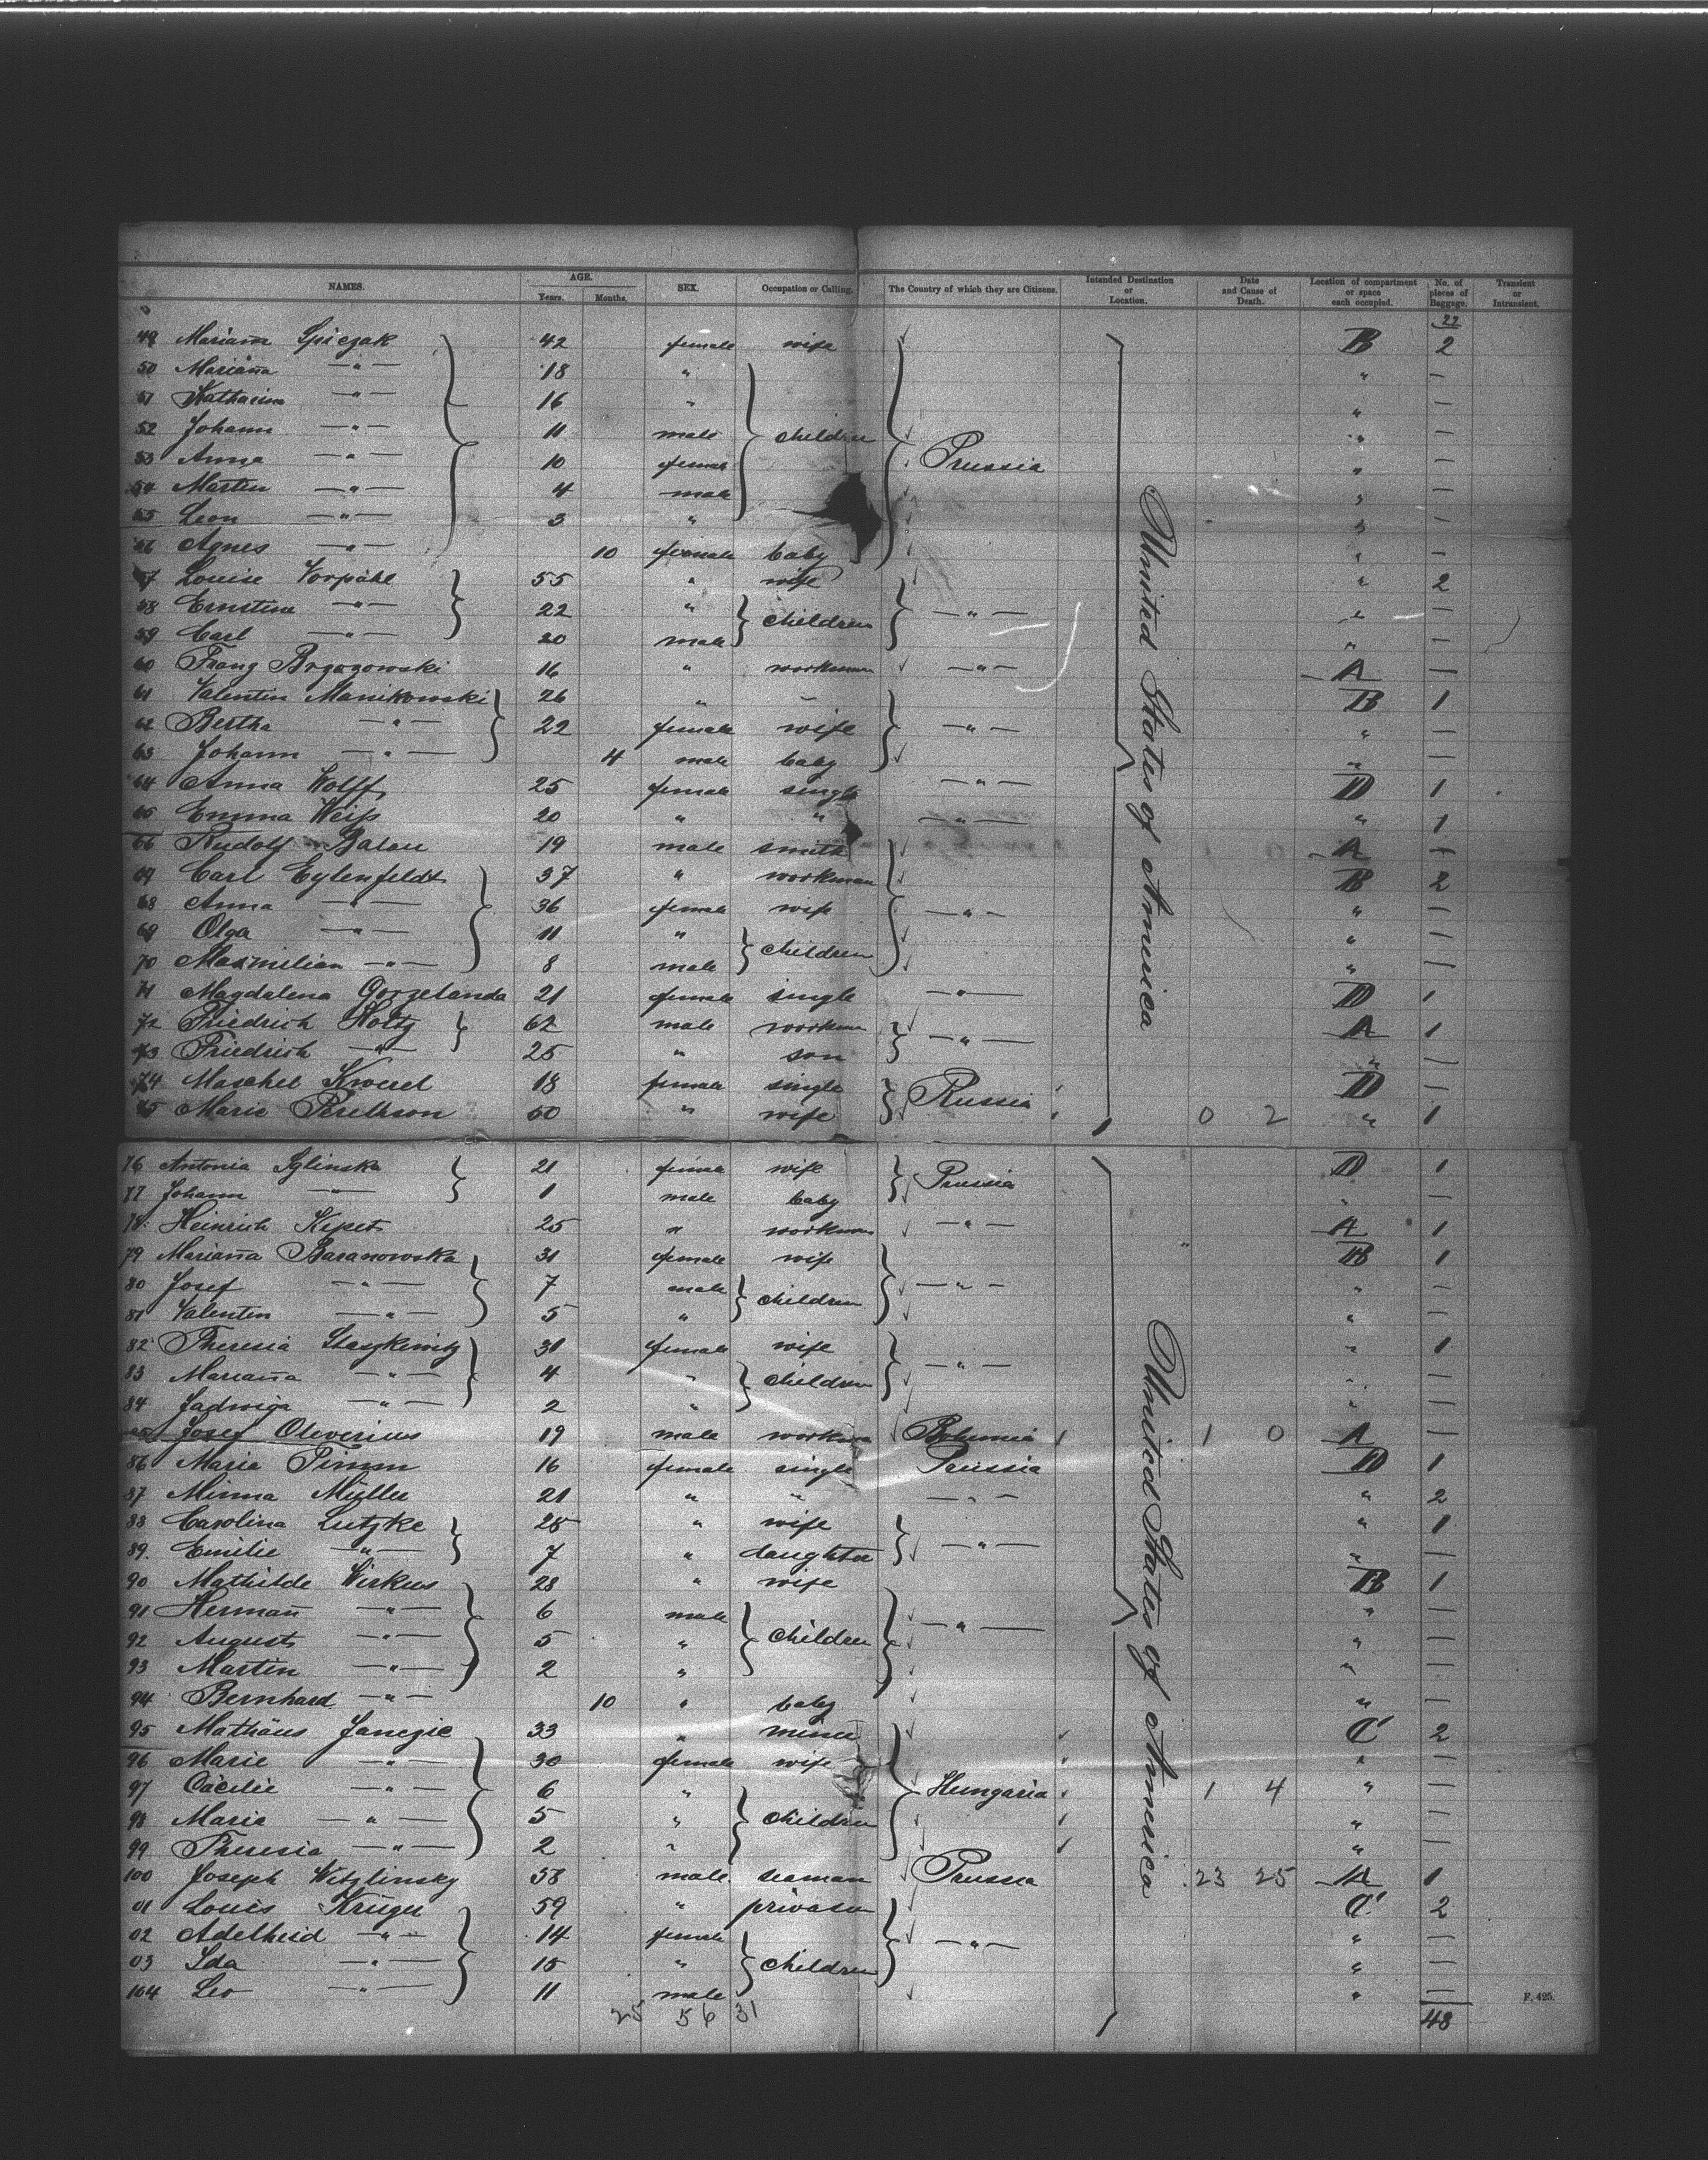 NAMES. AGE. Years. Months. SEX. Occupation or Calling. The Country of which they are Citizens. Intended Destination or Location. Date and Cause of Death. Location of compartment or space each occupied. No. of pieces of Baggage. Transient or Intransient.
22
49 Mariaña Spiczak 42 female wife B 2
50 Mariaña —"— 18 " " —
51 Katharina —"— 16 " " —
52 Johann —"— 11 male children " —
53 Anna —"— 10 female Prussia " —
54 Martin —"— 4 male " —
55 Leon —"— 3 " " —
56 Agnes —"— 10 female baby " —
57 Louise Vorpahl 55 " wife " 2
58 Ernstine —"— 22 " children —"— " —
59 Carl —"— 20 male " —
60 Franz Brzozowski 16 " workman —"— A —
61 Valentin Manikowski 26 " " B 1
62 Bertha —"— 22 female wife —"— " —
63 Johann —"— 4 male baby " —
64 Anna Wolff 25 female single —"— D 1
65 Emma Weiß 20 " " —"— " 1
66 Rudolf Balau 19 male smith A —
67 Carl Eylenfeldt 37 " workman B 2
68 Anna —"— 36 female wife —"— " —
69 Olga —"— 11 " children " —
70 Maximilian —"— 8 male " —
71 Magdalena Gorzelanda 21 female single —"— D 1
72 Friedrich Holtz 62 male workman —"— A 1
73 Friedrich —"— 25 " son " —
74 Maschel Kwerel 18 female single Russia D —
75 Marie 60 " wife 0 2 " 1
United States of America
76 Antonia 21 female wife Prussia D 1
77 Johann —"— 1 male baby " —
78 Heinrich 25 " workman —"— A 1
79 Mariaña Baranowska 31 female wife B 1
80 Josef —"— 7 male children —"— " —
81 Valentin —"— 5 " " —
82 Theresia 30 female wife " 1
83 Mariaña —"— 4 " children —"— " —
84 Jadwiga —"— 2 " " —
85 Josef Oliverius 19 male workman Bohemia 1 0 A —
86 Maria Timm 16 female single Prussia D 1
87 Minna Müller 21 " " —"— " 2
88 Carolina Lutzke 28 " wife —"— " 1
89. Emilie —"— 7 " daughter " —
90 Mathilde Virkus 28 " wife B 1
91 Hermañ —"— 6 male children —"— " —
92 August —"— 5 " " —
93 Martin —"— 2 " " —
94 Bernhard —"— 10 " baby " —
95 Mathäus Janezic 33 " miner C 2
96 Marie —"— 30 female wife " —
97 Cäcilie —"— 6 " Hungaria 1 4 " —
98 Maria —"— 5 " children " —
99 Theresia —"— 2 " " —
100 Joseph Witzlinsky 38 male seaman Prussia 23 25 A 1
01 Louis Krüger 59 " C 2
02 Adelheid —"— 14 female —"— " —
03 Ida —"— 15 " children " —
104 Leo —"— 11 male " —
United States of America
25 56 31 48
F. 425.